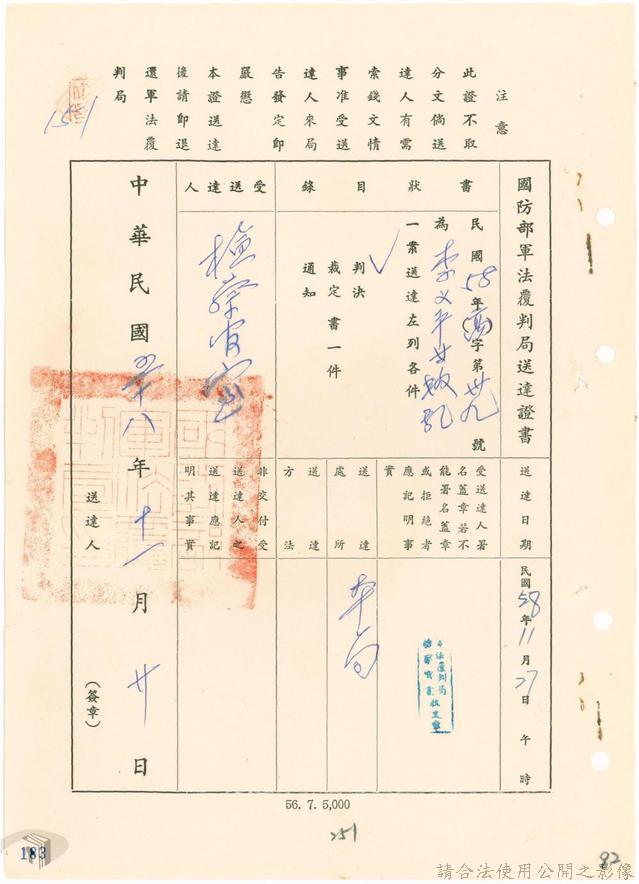 注意
此證不取
分文倘送
達人有需
索錢文情
事准受送
達人來局
告發定即
嚴懲
本證送達
後請即退
還軍法覆
判局
151
國防部軍法覆判局送達證書
書狀目錄
民國58年(高)字第卅九號
為李义平女叛乱
一案送達左列各件
判決
裁定書一件
通知
受送達人
檢察官室
送達日期
民國58年11月27日午時
受送達人署
名蓋章若不
能署名蓋章
或拒絕者
應記明事
實
送達處所
本局
送達方法
非交付受
送達人之
送達應記
明其事實
中華民國五十八年十一月廿日
送達人
(簽章)
56. 7. 5,000
251
183
82
請合法使用公開之影像